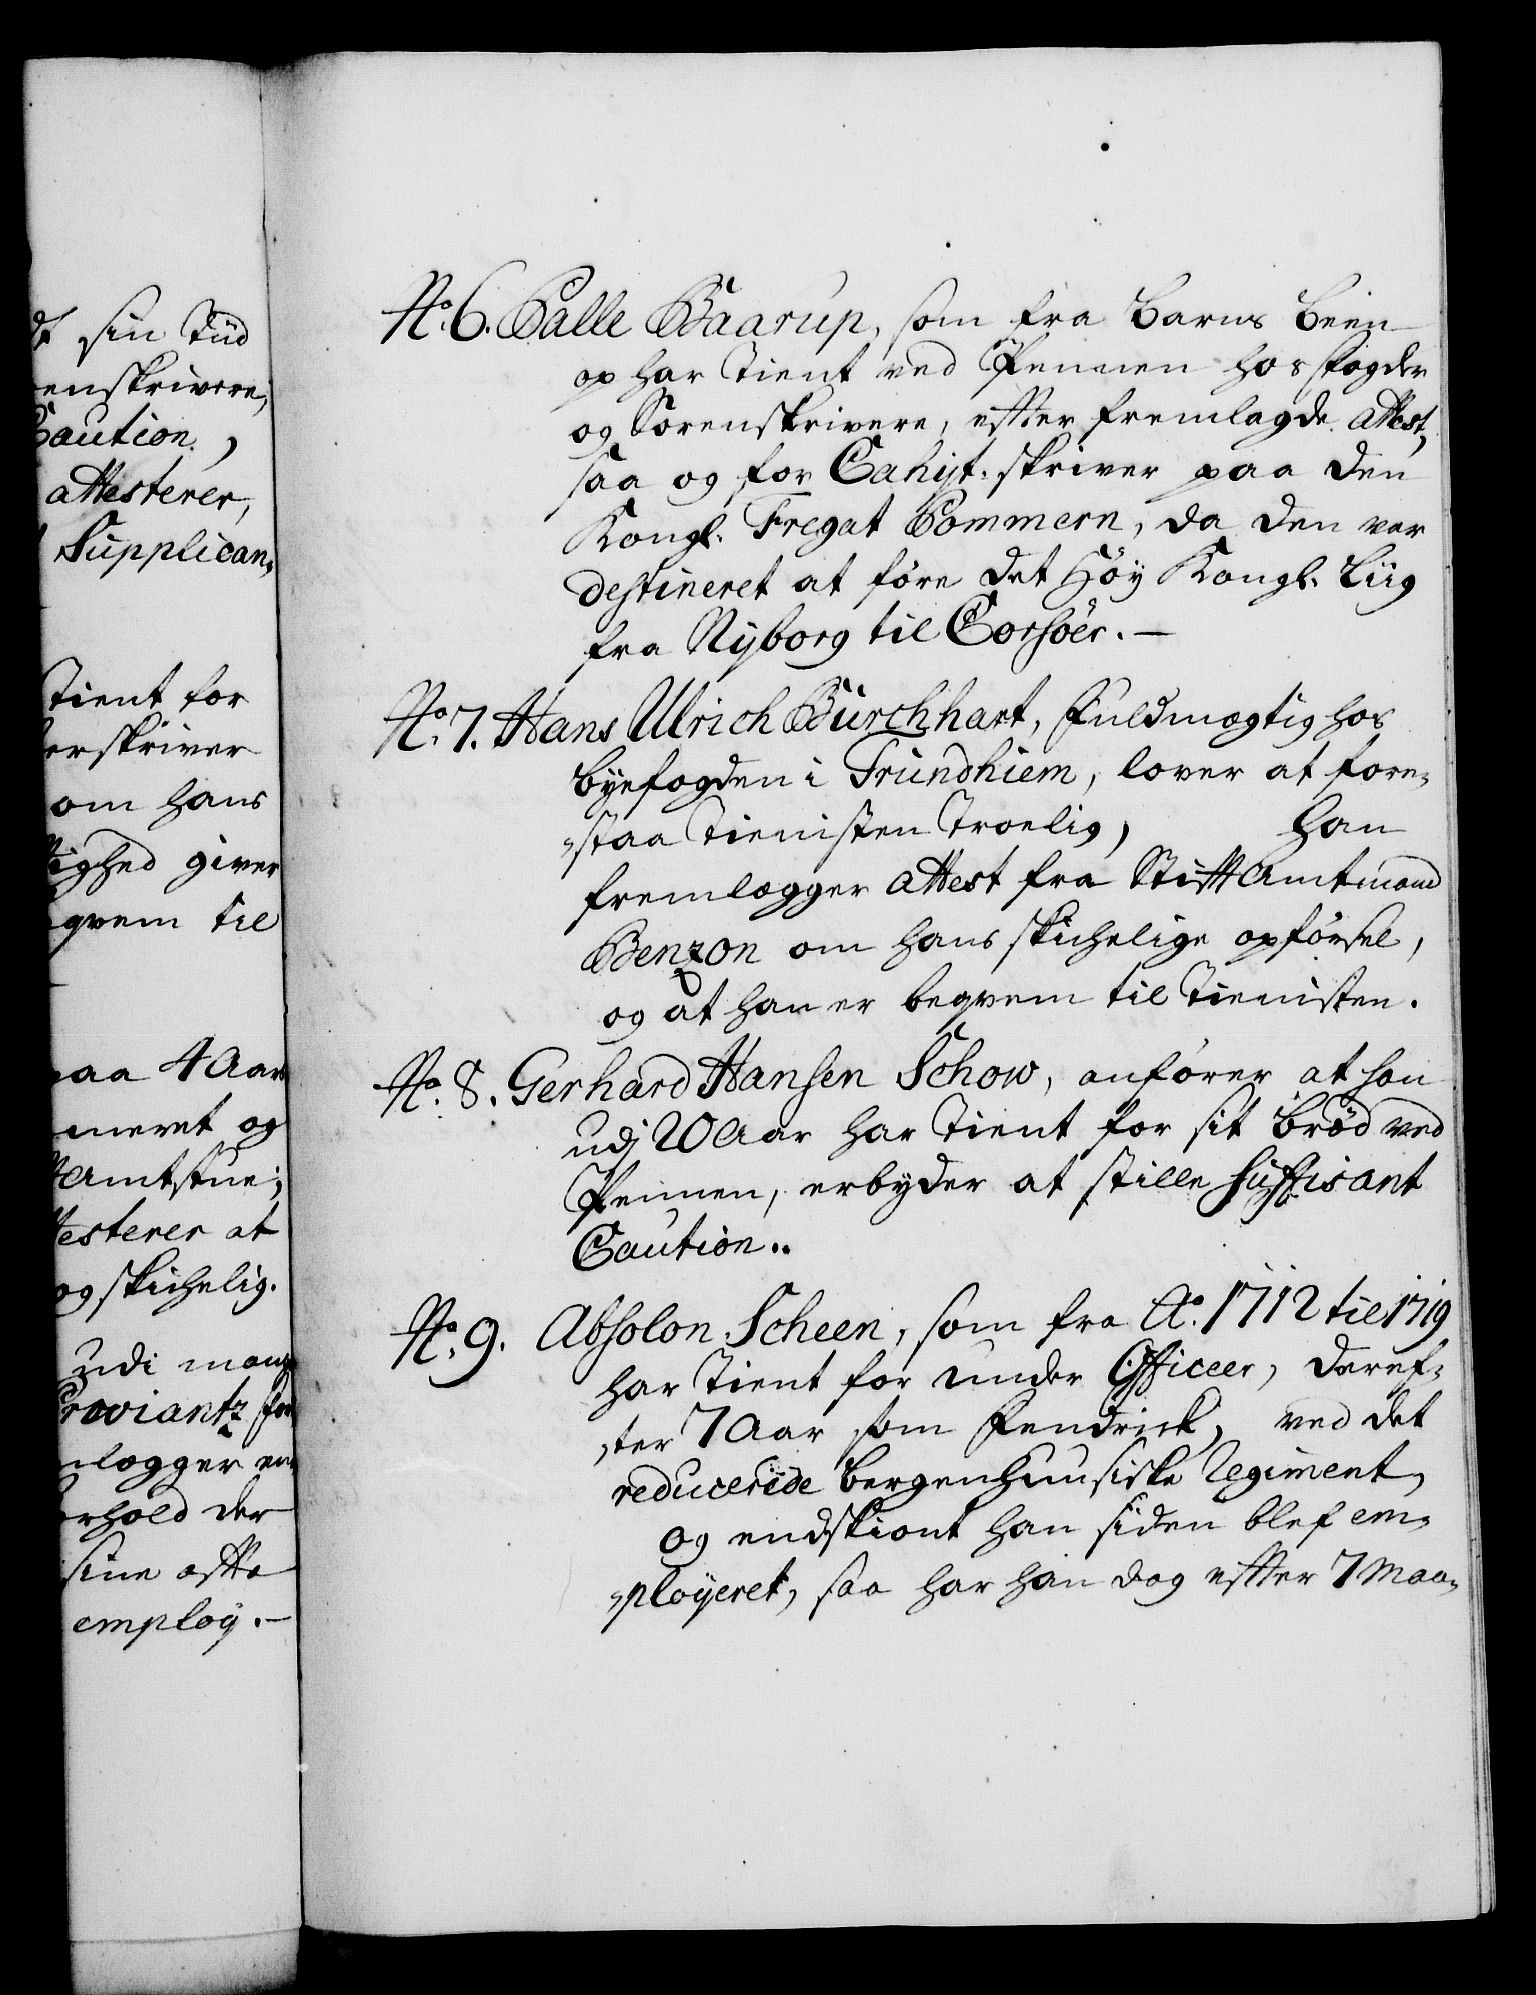 dt sin Tiid
enskrivere,
Caution,
attesterer,
Supplican„
Tient for
erskriver
om hans
ighed giver
qvem til
paa 4 Aar
meret og
Amtstue;
testerer at
og skichelig.
udi mange
Proviantz for
lægger en
rhold der
sine otte
employ.—
No. 6. Palle Baarup, som fra Barns been
op har Tient ved Pennen hos fogder
og Sorenskrivere, efter fremlagde attest,
saa og for Cahyt-skriver paa den
Kongl. Fregat Pommern, da den var
destineret at føre det Høy Kongl. Liig
fra Nyborg til Corsöer.—
No. 7. Hans Ulrich Bürchhart, Fuldmægtig hos
byefogden i Trundhiem, lover at fore„
„staa Tienisten Troelig, han
fremlægger attest fra Stift Amtmand
Benzon om hans skichelige opførsel,
og at han er beqvem til Tienisten.
No. 8. Gerhard Hansen Schow, anfører at han
udj 20 Aar har Tient for sit brød ved
Pennen, erbyder at stille suffisant
Caution..
No. 9. Absolon Scheen, som fra Ao. 1712 til 1719
har Tient for under Officeer, deref„
„ter 7 Aar som Fendrick, ved det
reducerede bergenhuusiske Regiment,
og endskiønt han siden blef em„
„ployeret, saa har han dog efter 7 Maa„